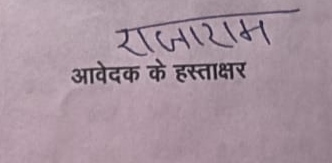 राजाराम
आवेदक के हस्ताक्षर